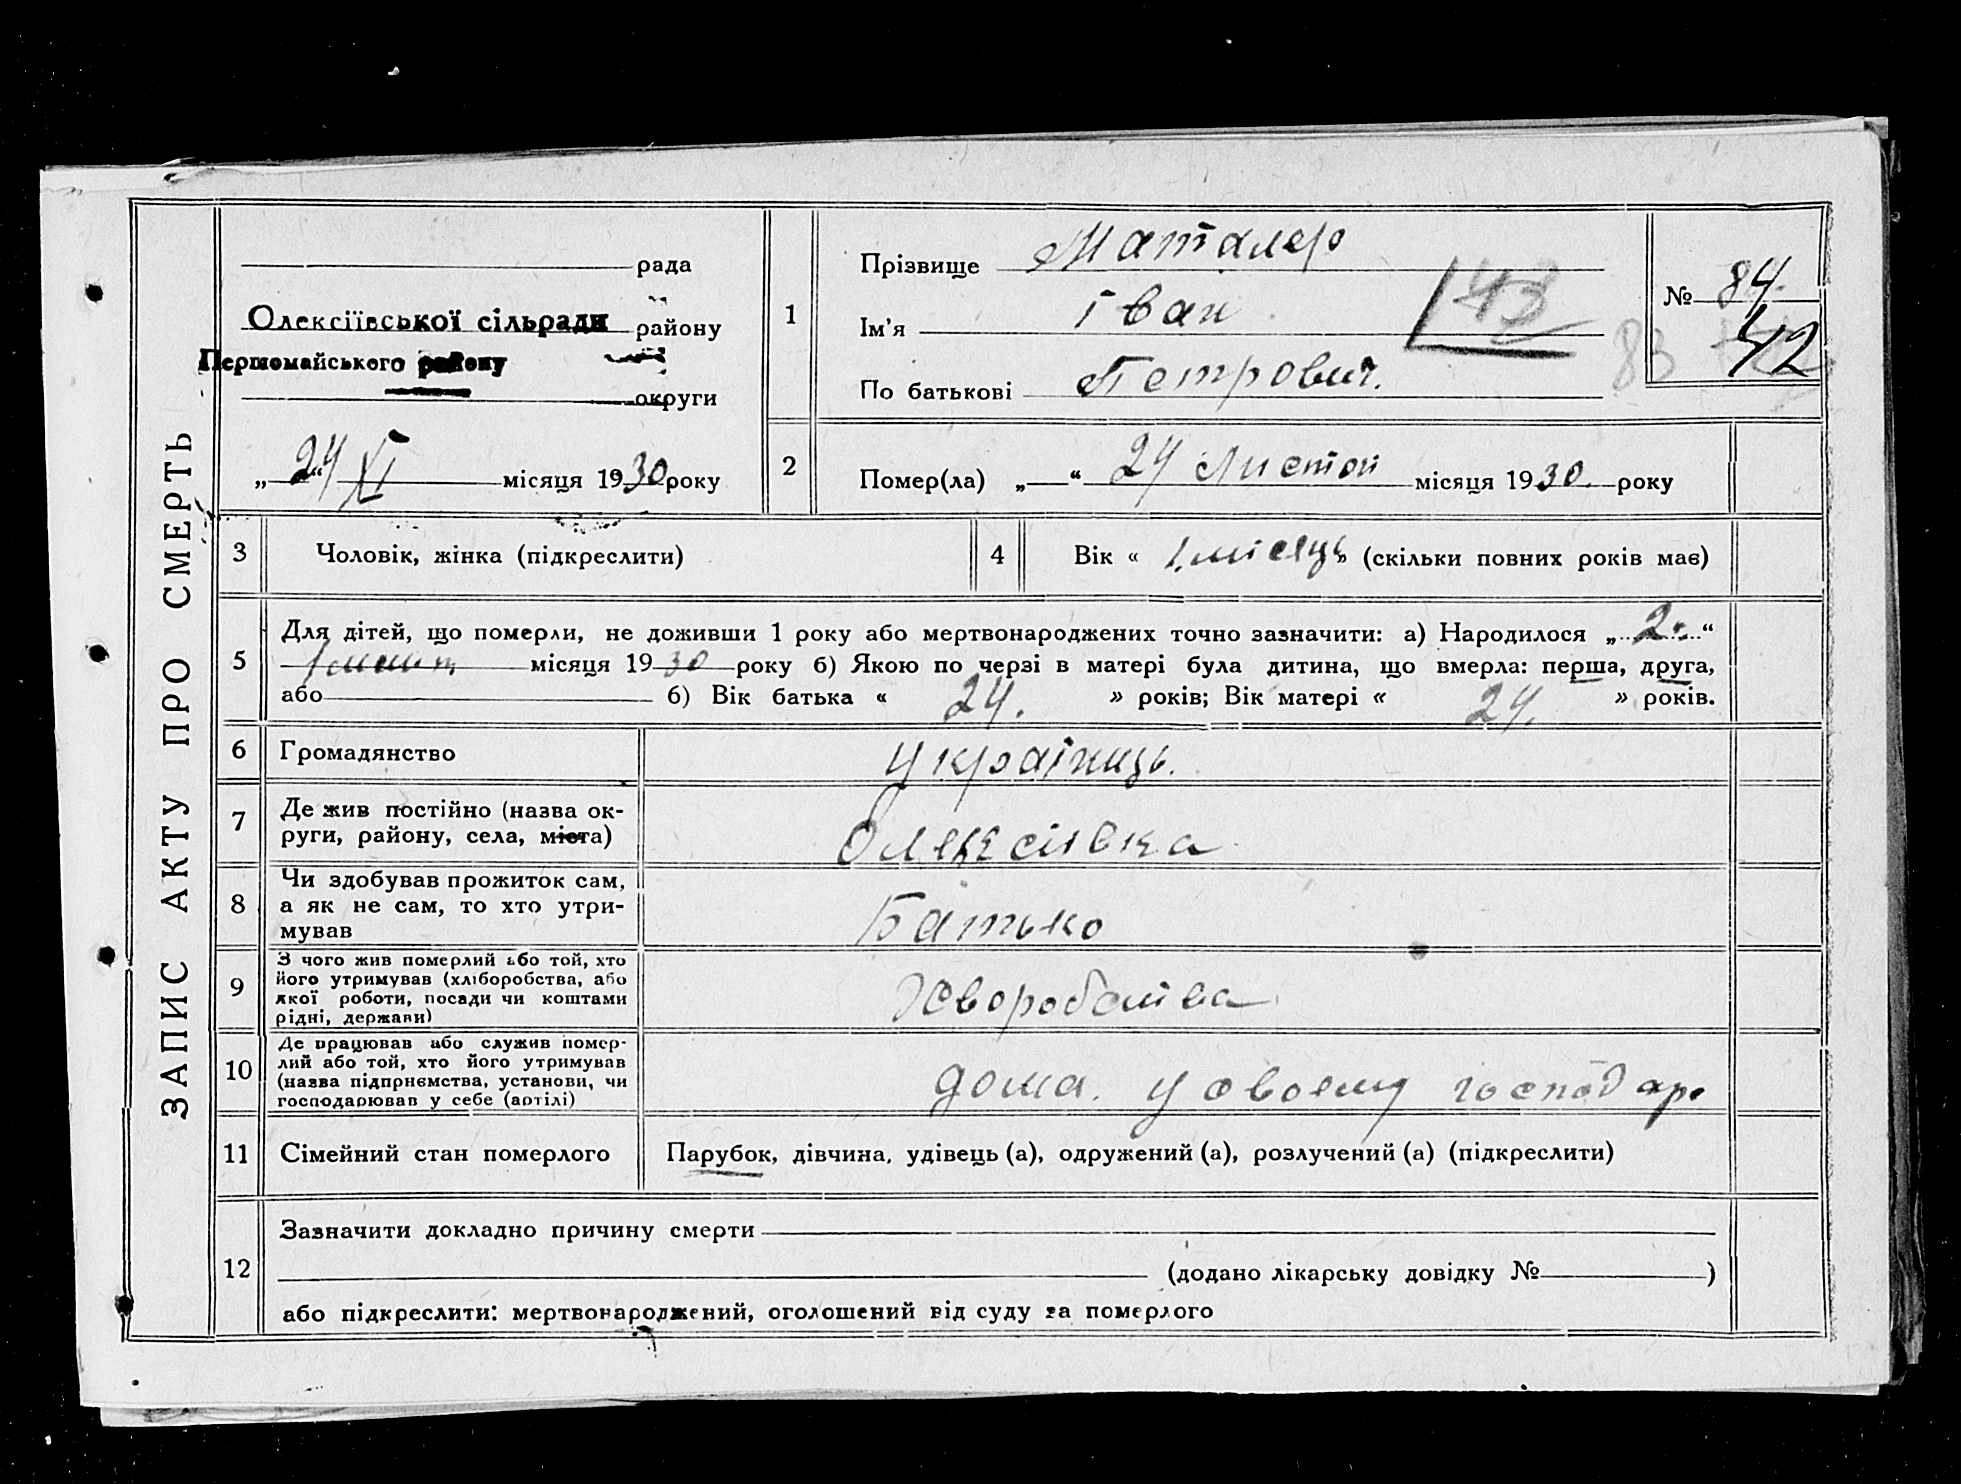 ЗАПИС АКТУ ПРО СМЕРТЬ
рада
Олексіївської сільради району
Першомайського району
округи
„24“ XI місяця 1930 року
1
Прізвище Маталер
Ім'я Іван
По батькові Петрович.
143
№ 84
83
42
2
Помер(ла) „ “ 24 Листоп місяця 1930 року
3
Чоловік, жінка (підкреслити)
4
Вік « 1 місяць » (скільки повних років має)
5
Для дітей, що померли, не доживши 1 року або мертвонароджених точно зазначити: а) Народилося „2“
місяця 1930 року б) Якою по черзі в матері була дитина, що вмерла: перша, друга,
або б) Вік батька « 24. » років; Вік матері « 24. » років.
6
Громадянство
Українець.
7
Де жив постійно (назва ок-
руги, району, села, міста)
Олексіївка
8
Чи здобував прожиток сам,
а як не сам, то хто утри-
мував
Батько
9
З чого жив померлий або той, хто
його утримував (хліборобства, або
якої роботи, посади чи коштами
рідні, держави)
10
Де працював або служив помер-
лий або той, хто його утримував
(назва підприємства, установи, чи
господарював у себе (артілі)
дома. у своєму господар.
11
Сімейний стан померлого
Парубок, дівчина, удівець (а), одружений (а), розлучений (а) (підкреслити)
12
Зазначити докладно причину смерти
(додано лікарську довідку № )
або підкреслити: мертвонароджений, оголошений від суду за померлого